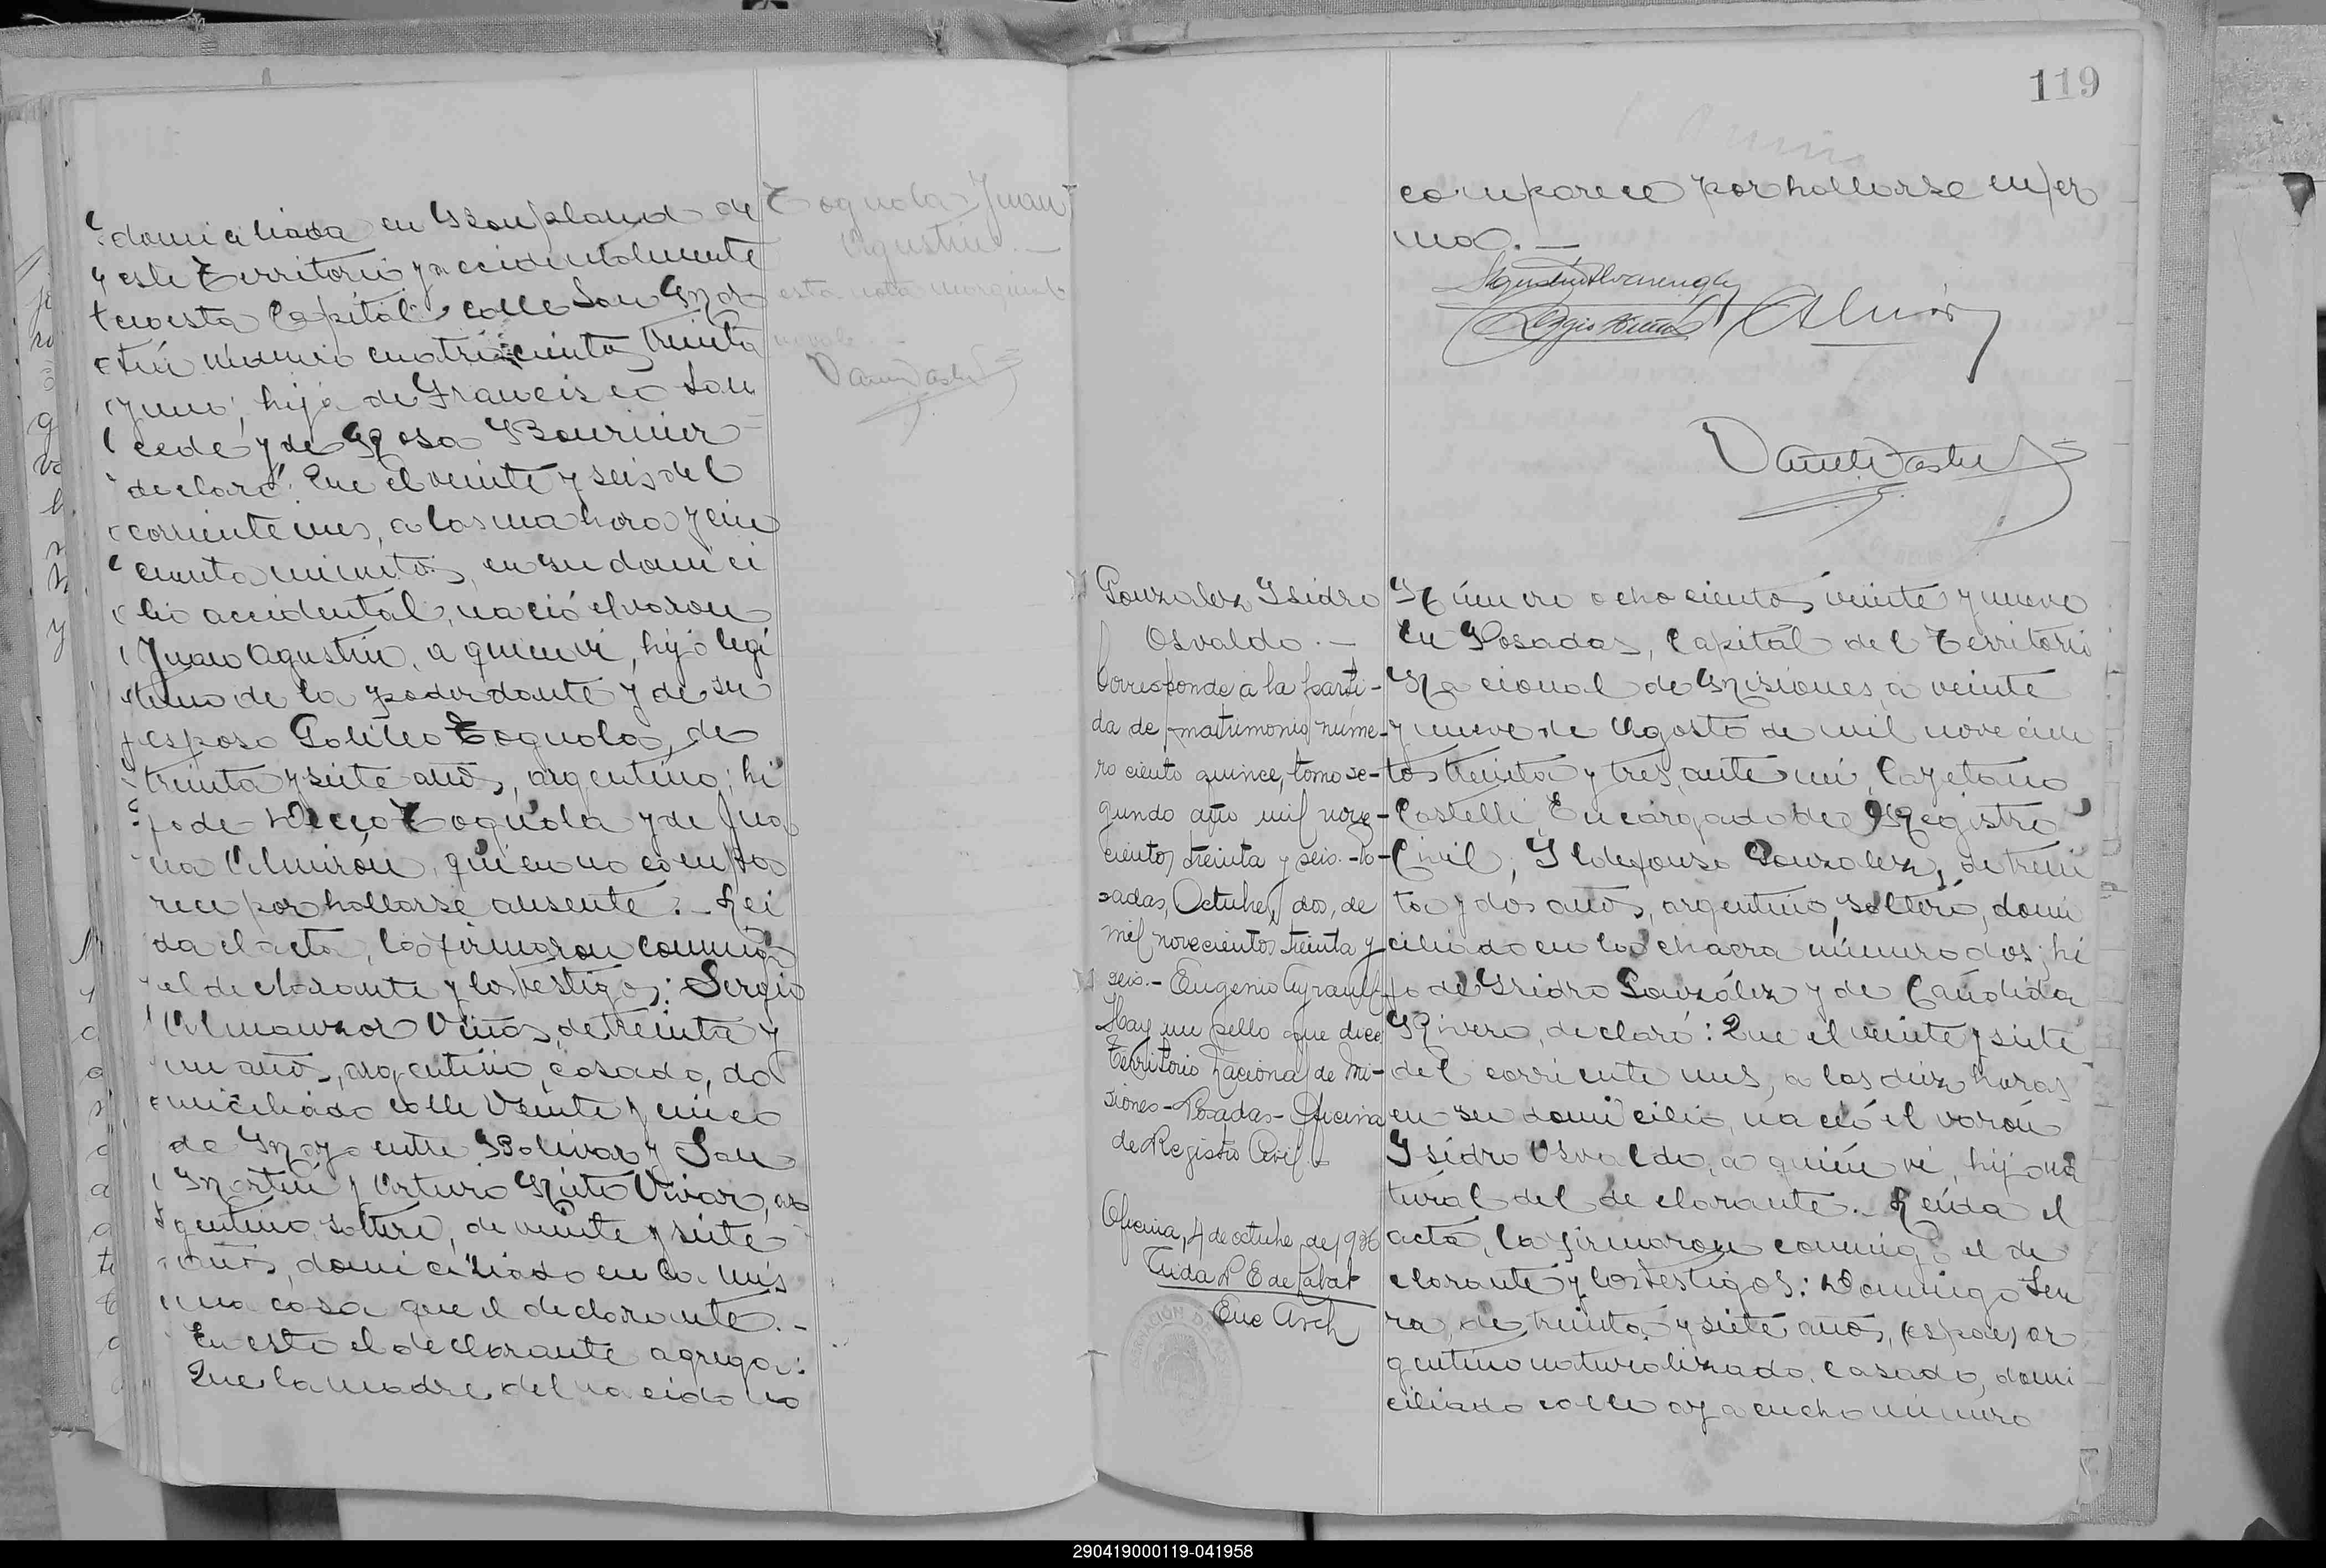 domiciliada en Bonpland de
este Territorio y accidentalmente
en esta Capital, calle San Mar
tín número cuatrocientos treinta
y uno, hija de Francisco Lan
cede y de Rosa Bouriner
declaró: Que el veinte y seis del
corriente mes, a las una hora y cin
cuenta minutos, en su domici
lio accidental, nació el varon
Juan Agustin, a quien ví, hijo legí
timo de la poderdante y de su
esposo Galileo Tognola, de
treinta y siete años, argentino; hi
jo de Decio Tognola y de Jua
na Almirón, quien no compa
rece por hallarse ausente.- Leí
da el acta, la firmaron conmigo
el declarante y los testigos: Sergio
Almanzor Viñas, de treinta y
un años, argentino, casado, do
miciliado calle Veinte y cinco
de Mayo entre Bolivar y San
Martín y Arturo Nieto Vivar, ar
gentino, soltero, de veinte y siete
años, domiciliado en la mis
ma casa que el declarante.-
En esto el declarante agrega:
Que la madre del nacido no
Tognola Juan
Agustin.-
esta nota marginal
no vale.-
119
comparece por hallarse enfer
ma.-
Gonzalez Isidro
Osvaldo.-
Corresponde a la parti-
da de matrimonio núme-
ro ciento quince, tomo se-
gundo año mil nove-
cientos treinta y seis.-Po-
sadas, Octubre, dos, de
mil novecientos treinta y
seis.- Eugenio
Hay un sello que dice
Territorio Nacional de Mi-
siones-Posadas-Oficina
de Registro Civil
Oficina, 4 de octubre de 1936
Enc Arch
Número ochocientos veinte y nueve
En Posadas, Capital del Territorio
Nacional de Misiones, a veinte
y nueve de Agosto de mil novecien
tos treinta y tres, ante mí, Cayetano
Castelli, Encargado del Registro
Civil, Ildefonso Gonzalez, de trein
ta y dos años, argentino, soltero, domi
ciliado en la chacra número dos; hi
jo de Isidro González y de Cándida
Rivero, declaró: Que el veinte y siete
del corriente mes, a las diez horas
en su domicilio, nació el varón
Isidro Osvaldo, a quién ví, hijo na
tural del declarante.- Leída el
acta, la firmaron conmigo el de
clarante y los testigos: Domingo Sen
ra, de treinta y siete años, (españ) ar
gentino naturalizado, casado, domi
ciliado calle ayacucho número
290419000119-041958